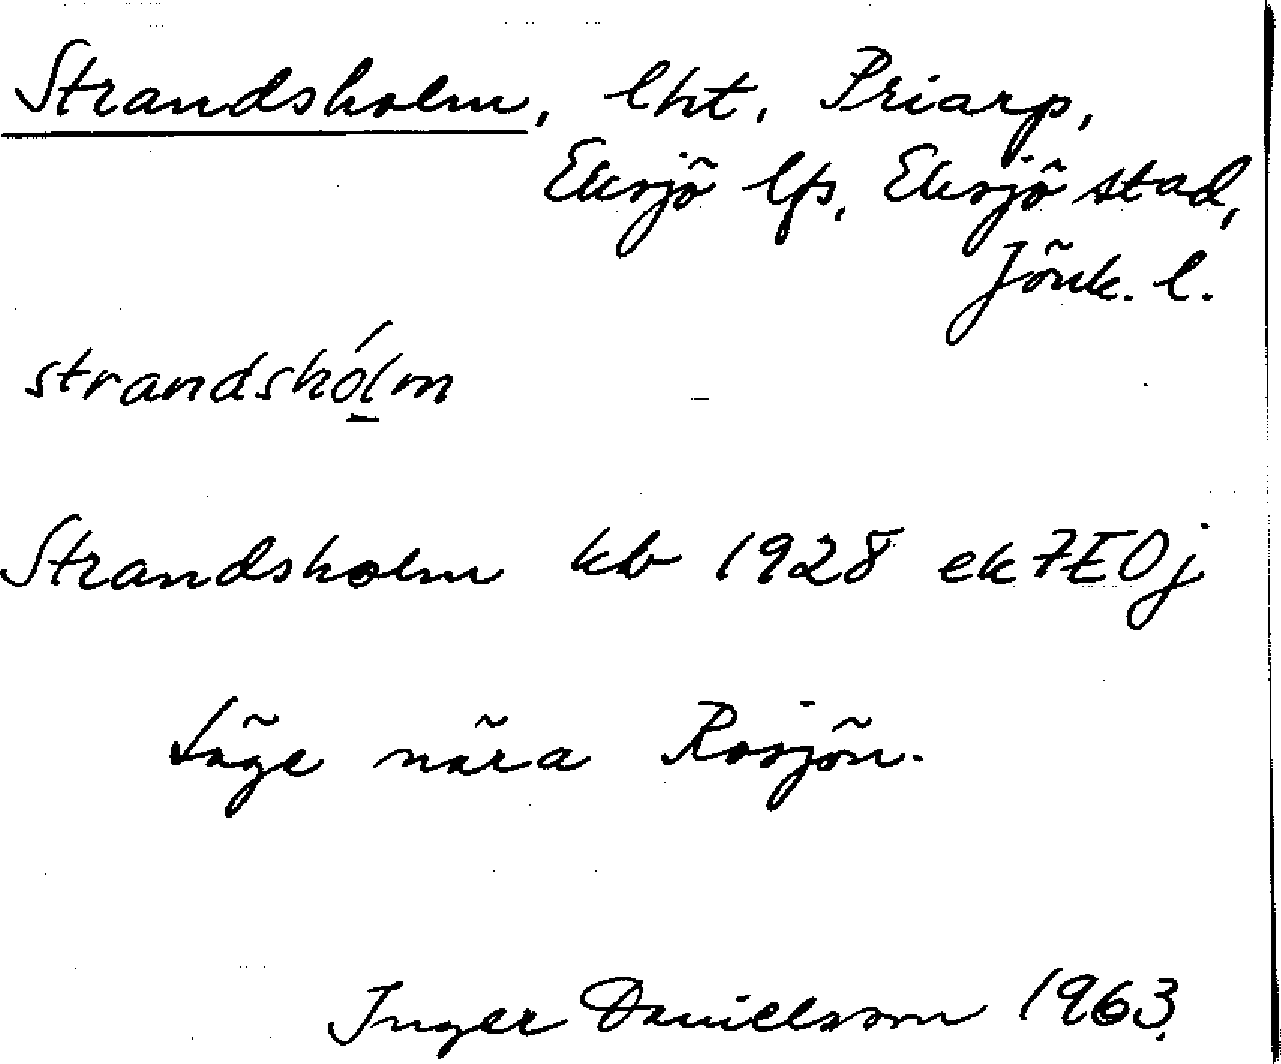 Strandsholm, lht. Priarp,
Eksjö lfs, Eksjö stad,
Jönk. l.
strandshó̲l̲m
Strandsholm kb 1928 ek 7E0j
Läge nära Rosjön.
Inger Danielsson 1963.